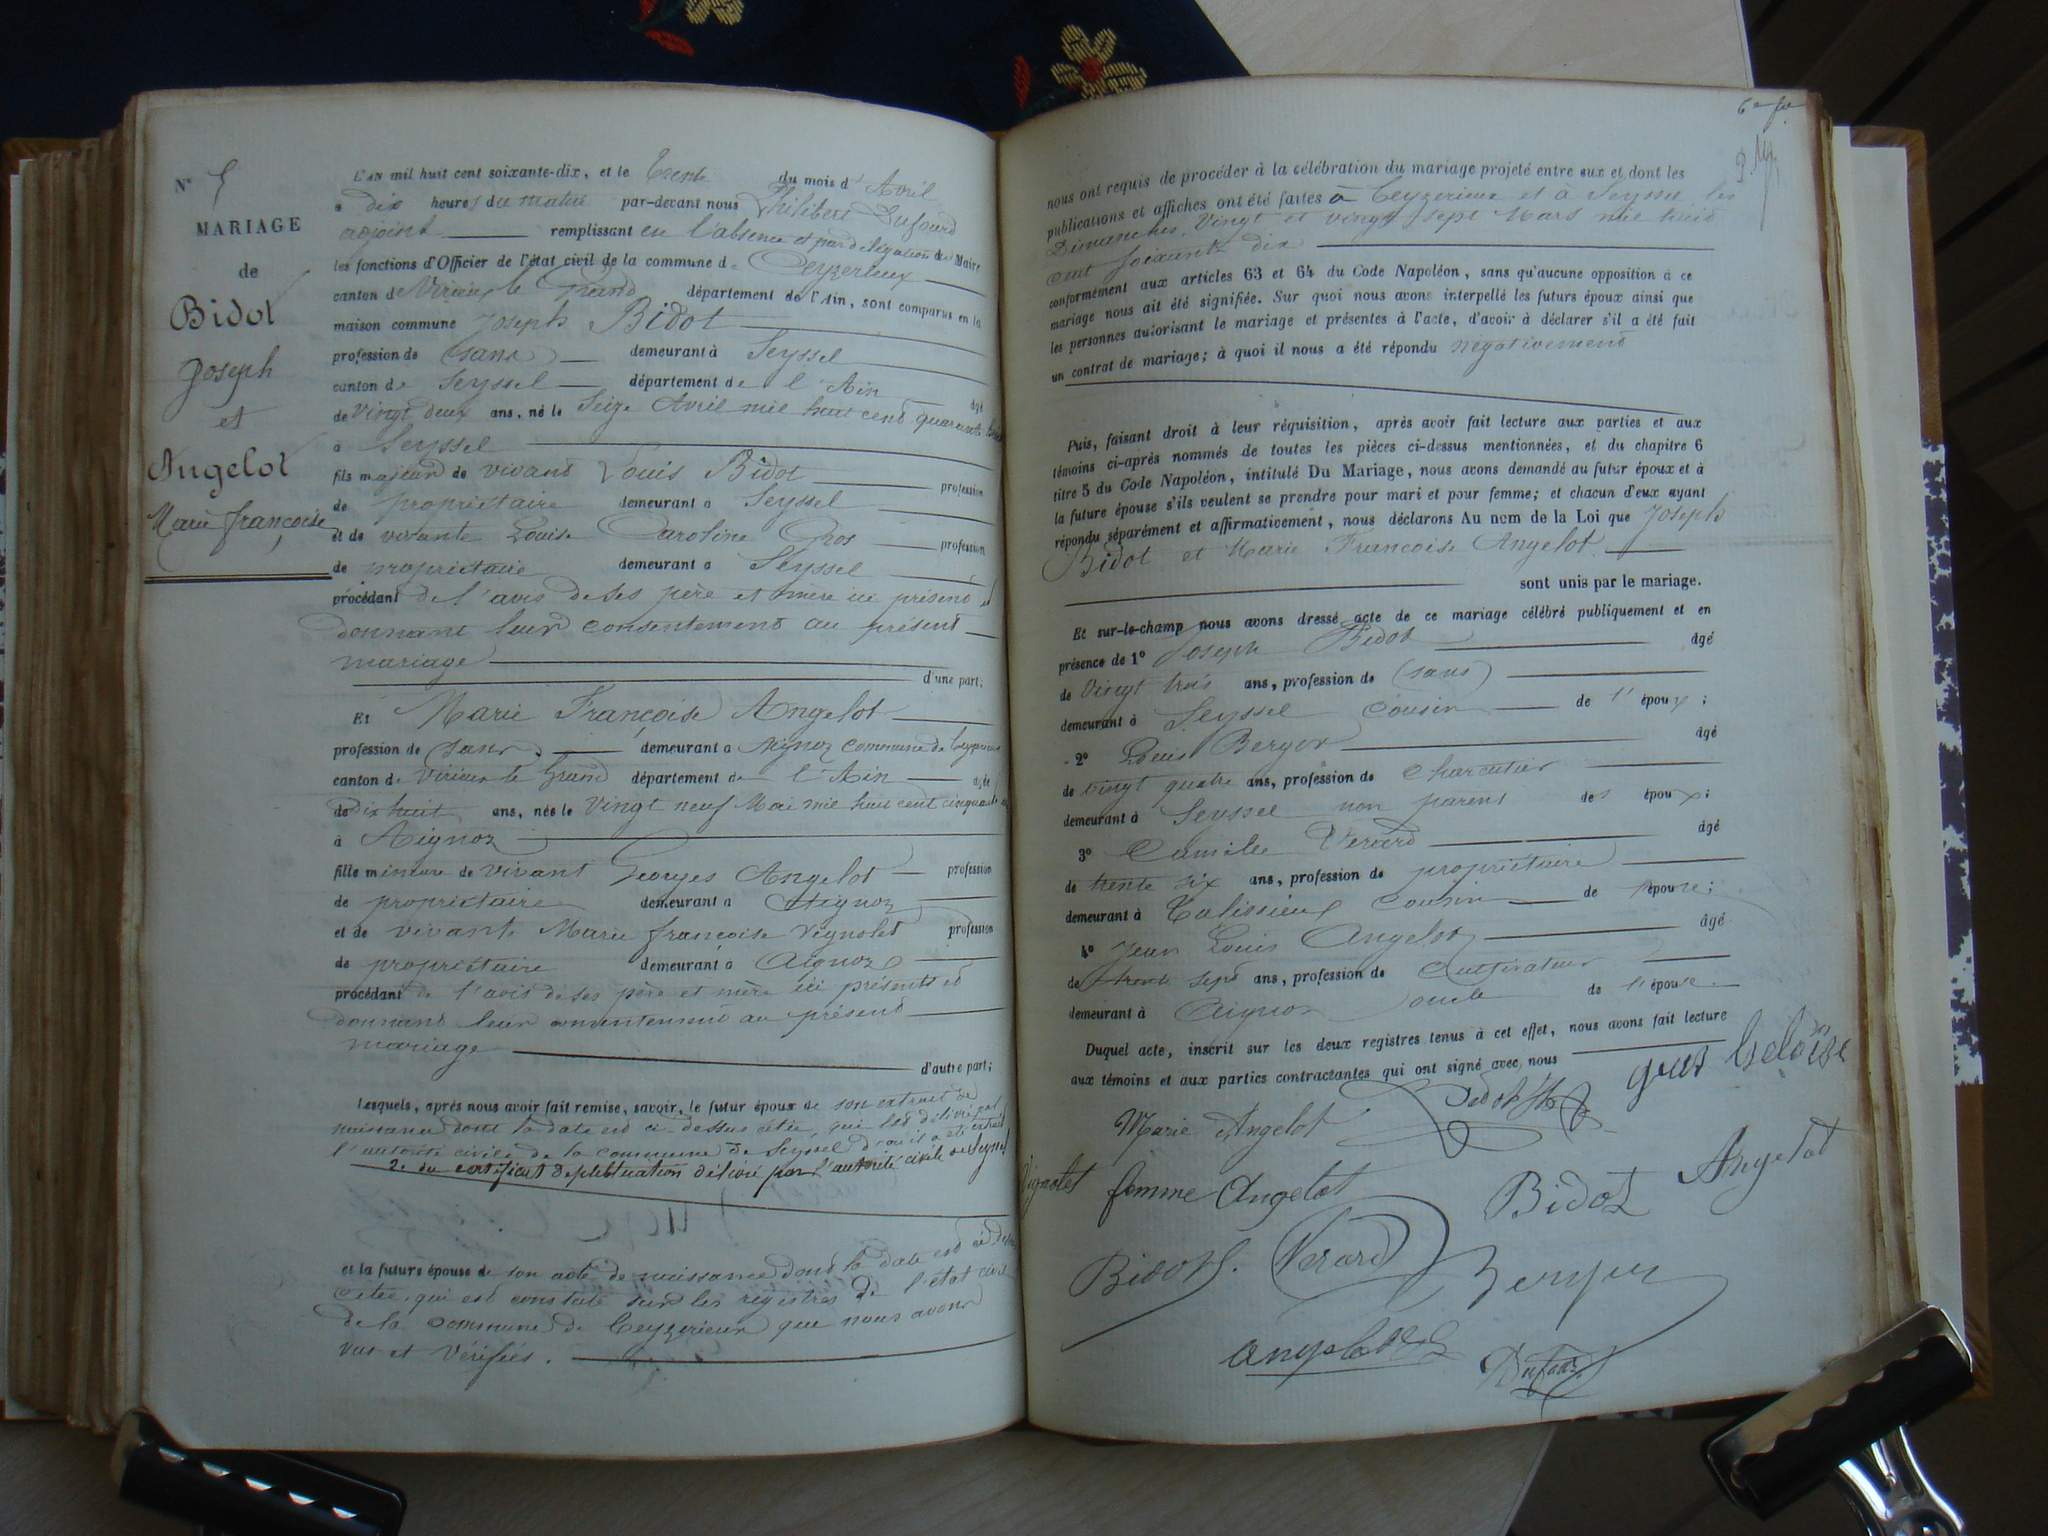 N° 5
MARIAGE
de
Bidot
Joseph
et
Angelot
Marie françoise
L'AN mil huit cent soixante-dix, et le trente du mois d'Avril
a dix heures du matin par-devant nous Philibert Dufourd
adjoint remplissant en l'absence et par délégation du Maire
les fonctions d'Officier de l'état civil de la commune de Ceyzerieux
canton de Virieux le Grand département de l'Ain, sont comparus en la
maison commune Joseph Bidot
profession de (sans) demeurant à Seyssel
canton de Seyssel département de l'Ain âgé
de vingt deux ans, né le Seize Avril mil huit cent quarante huit
à Seyssel
fils majeur de vivant Louis Bidot profession
de propriétaire demeurant a Seyssel
et de vivante Louise Caroline Gros profession
de propriétaire demeurant a Seyssel
procédant de l'avis de ses père et mère ici présent et
donnant leur consentement au présent
mariage
d'une part;
Et Marie Françoise Angelot
profession de (sans) demeurant a Aignoz commune de Ceyzerieux
canton de Virieux le Grand département de l'Ain âgée
de dix huit ans, née le vingt neuf Mai mil huit cent cinquante
à Aignoz
fille mineure de vivant Georges Angelot profession
de propriétaire demeurant a Aignoz
et de vivante Marie françoise Vignolet profession
de propriétaire demeurant à Aignoz
procédant de l'avis de ses père et mère ici présents et
donnant leur consentement au présent
mariage
d'autre part;
Lesquels, après nous avoir fait remise, savoir, le futur époux de son extrait de
naissance dont la date est ci-dessus citée, qui lui délivré par
l'autorité civile de la commune de Seyssel d'où il a été extrait
2° du certificat de publication délivré par l'autorité civile de Seyssel
et la future épouse de son acte de naissance dont la date est ci dessus
citée, qui est constaté sur les registres de l'état civil
de la commune de Ceyzerieux que nous avons
vus et vérifiés.
nous ont requis de procéder à la célébration du mariage projeté entre eux et dont les
publications et affiches ont été faites à Ceyzerieux et à Seyssel les
Dimanches, Vingt et vingt sept Mars mil huit
cent soixante dix
conformément aux articles 63 et 64 du Code Napoléon, sans qu'aucune opposition à ce
mariage nous ait été signifiée. Sur quoi nous avons interpellé les futurs époux ainsi que
les personnes autorisant le mariage et présentes à l'acte, d'avoir à déclarer s'il a été fait
un contrat de mariage; à quoi il nous a été répondu négativement
Puis, faisant droit à leur réquisition, après avoir fait lecture aux parties et aux
témoins ci-après nommés de toutes les pièces ci-dessus mentionnées, et du chapitre 6
titre 5 du Code Napoléon, intitulé Du Mariage, nous avons demandé au futur époux et à
la future épouse s'ils veulent se prendre pour mari et pour femme; et chacun d'eux ayant
répondu séparément et affirmativement, nous déclarons Au nom de la Loi que Joseph
Bidot et Marie Francoise Angelot
sont unis par le mariage.
Et sur-le-champ nous avons dressé acte de ce mariage célébré publiquement et en
présence de 1° Joseph Bidot âgé
de vingt trois ans, profession de (sans)
demeurant à Seyssel cousin de l'époux;
2° Louis Berger âgé
de vingt quatre ans, profession de charcutier
demeurant à Seyssel non parent des époux;
3° Camille Verard âgé
de trente six ans, profession de propriétaire
demeurant à Talissieux cousin de l'épouse;
4° Jean Louis Angelot âgé
de trente sept ans, profession de Cultivateur
demeurant à Aignoz oncle de l'épouse
Duquel acte, inscrit sur les deux registres tenus à cet effet, nous avons fait lecture
aux témoins et aux parties contractantes qui ont signé avec nous
Marie Angelot
Vignolet femme Angelot Bidot Angelot
Bidot Verard Berger
Angelot
Dufourd